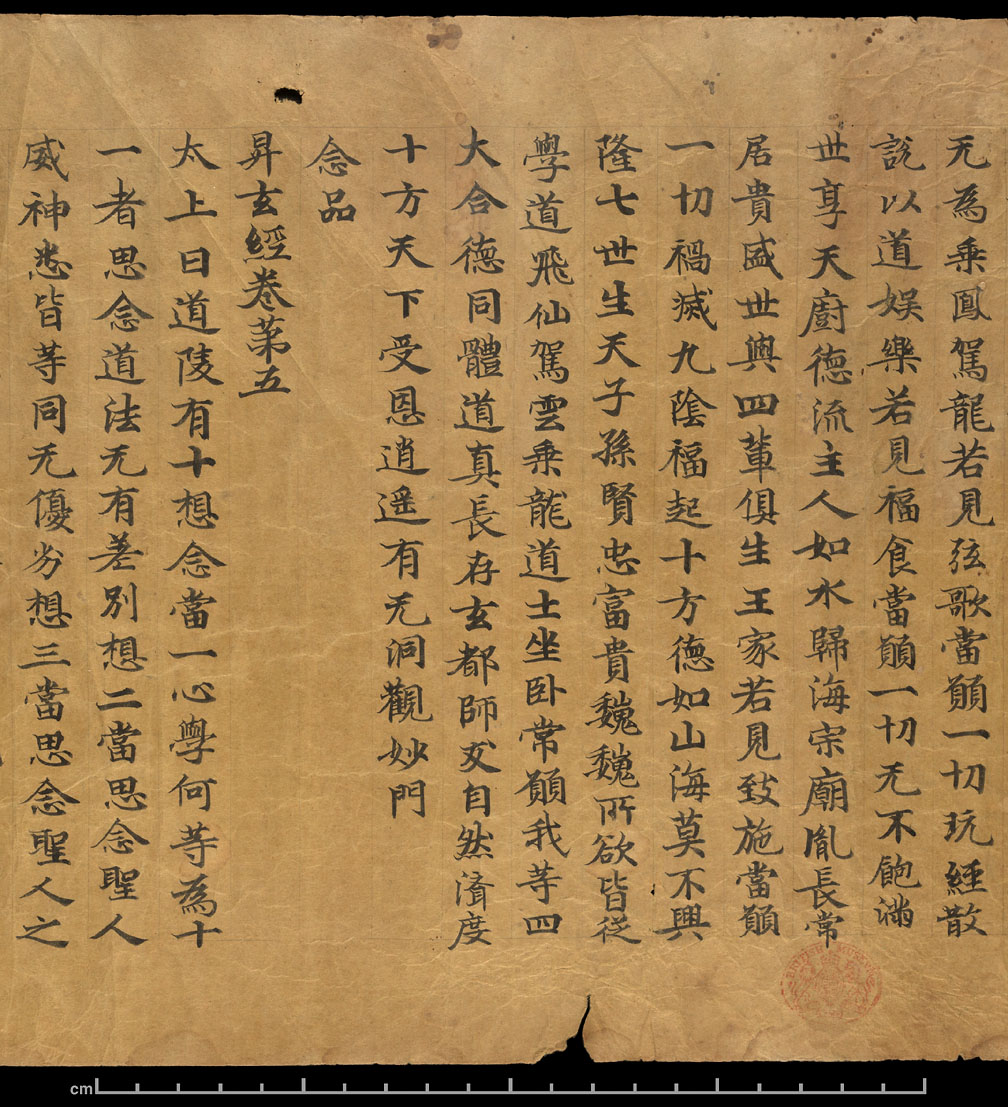 无為乗鳳駕龍若見弦歌當願一切玩經散
說以道娛樂若見福食當願一切无不飽滿
世享天廚德流主人如水歸海宗廟胤長常
居貴盛世與四輩俱生王家若見致施當願
一切禍滅九陰福起十方德如山海莫不興
隆七世生天子孫賢忠富貴巍巍所欲皆從
學道飛仙駕雲乗龍道士坐卧常願我等四
大合德同體道真長存玄都師友自然濟度
十方天下受恩逍遥有无洞觀妙門
念品
昇玄經卷第五
太上曰道陵有十想念當一心學何等為十
一者思念道法无有差別想二當思念聖人
威神悉皆等同无優劣想三當思念聖人之
cm